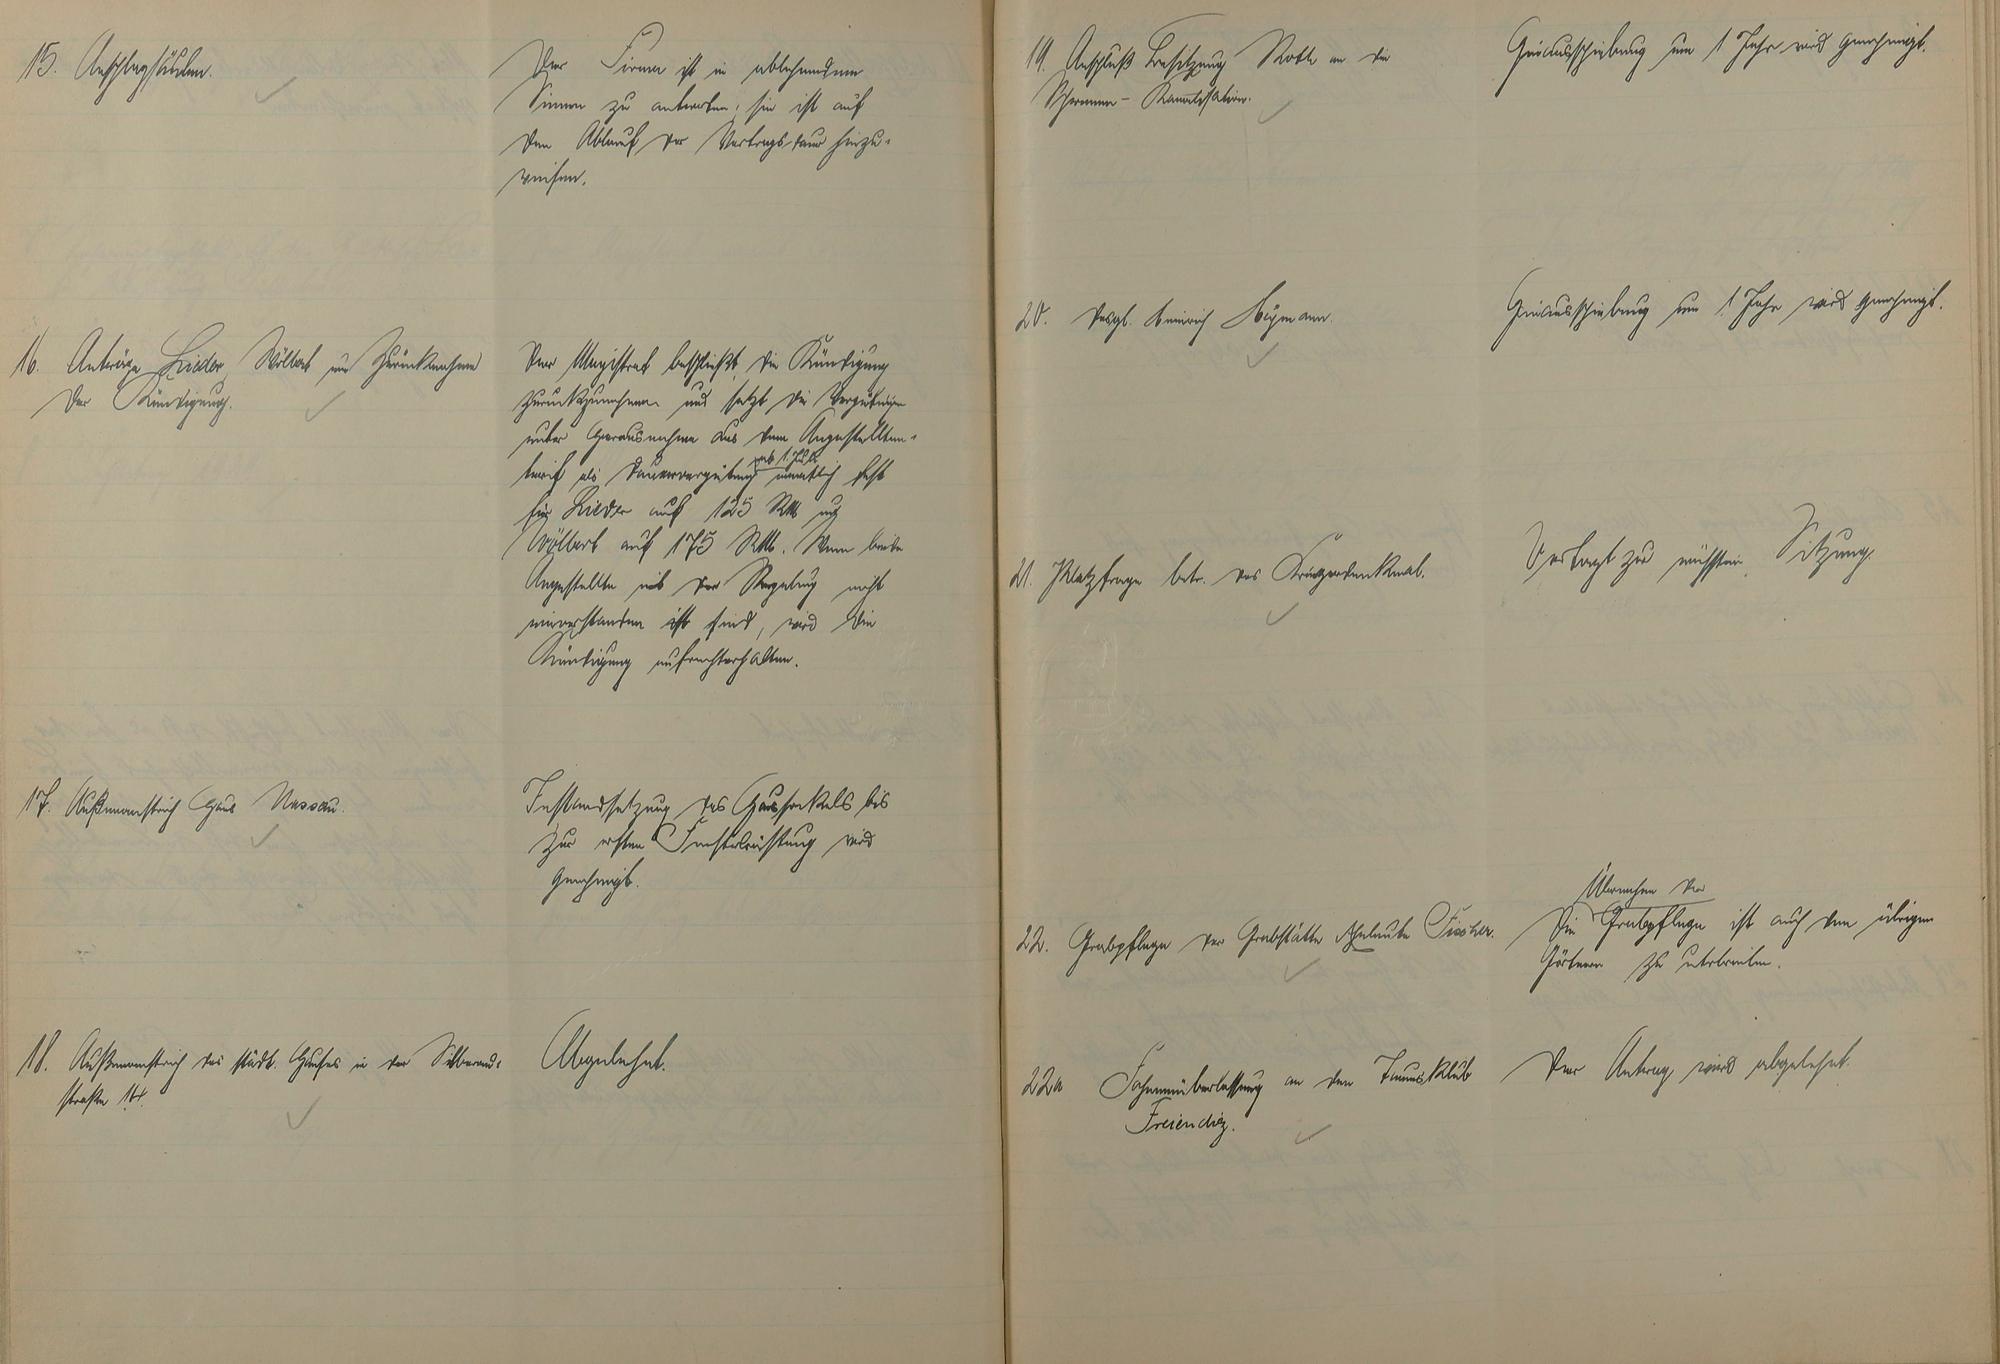 15. Anschlagsäulen.
Der Firma ist in ablehnendem
Sinne zu antworten; sie ist auf
den Ablauf der Vertragsdauer hinzu-
weisen.
16. Anträge Lieder, Wölbert um Zurücknahme
der Kündigung.
Der Magistrat beschließt, die Kündigung
zurückzunehmen und setzt die Vergütung
unter Herausnahme aus dem Angestellten-
tarif als Dauervergütung ab 1. Juli monatlich fest
für Lieder auf 125 RM und
Wölbert auf 175 RM. Wenn beide
Angestellte mit der Regelung nicht
einverstanden ist sind, wird die
Kündigung aufrechterhalten.
17. Außenanstrich Haus Nassau.
Instandsetzung des Haussockels bis
zur ersten Fensterbrüstung wird
genehmigt.
18. Außenanstrich des städt. Hauses in der
straße 14.
Abgelehnt.
19. Anschluß Besitzung Roth an die
Schwemm-Kanalisation.
Hinausschiebung um 1 Jahr wird genehmigt.
20. desgl. Heinrich
Hinausschiebung um 1 Jahr wird genehmigt.
21. Platzfrage betr. des Kriegerdenkmal.
Vertagt zur nächsten Sitzung.
22. Grabpflege der Grabstätte Eheleute Fischer.
Übernahme der
Die Grabpflege ist auch den übrigen
Gärtnern zu unterbreiten.
22a Fahnenüberlassung an den Taunusklub
Freiendiez.
Der Antrag wird abgelehnt.